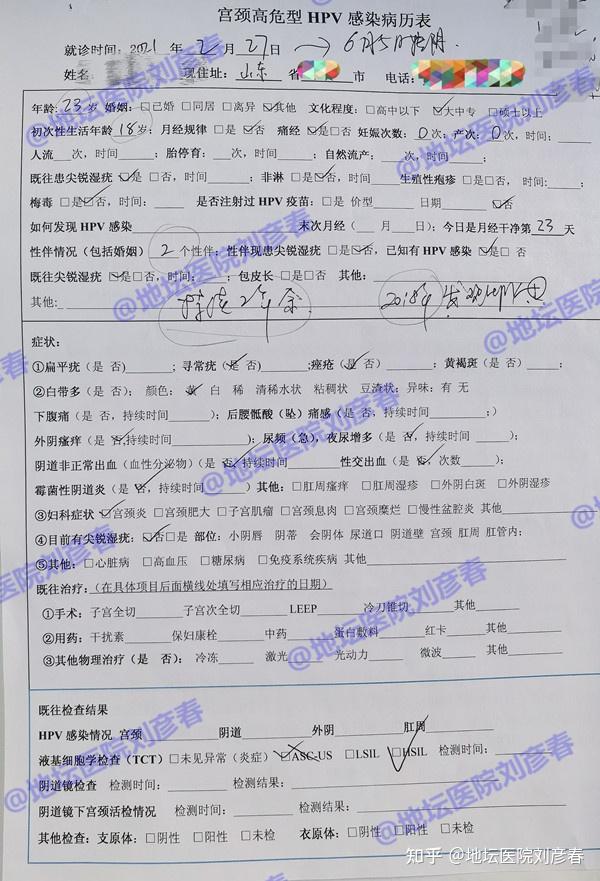 宫颈高危型 HPV 感染病历表
就诊时间：2021 年 2 月 27 日 → 6月5日转阴.
姓名 现住址：山东 省 市 电话：
年龄：23 岁 婚姻：□已婚 □同居 □离异 ☑其他 文化程度：□高中以下 ☑大中专 □硕士以上
初次性生活年龄 18岁；月经规律 □是 ☑否 痛经 ☑是□否 妊娠次数：0 次；产次：0 次，时间：
人流___次，时间______；胎停育：___次，时间______；自然流产：___次，时间______；
既往患尖锐湿疣 ☑是 □否，时间______；非淋 □是☑否，时间______ 生殖性疱疹 □是□否，时间:______;
梅毒 □是☑否，时间:______ 是否注射过 HPV 疫苗：□是 价型______ 日期______ ☑否
如何发现 HPV 感染______ 末次月经（__ 月__日）；今日是月经干净第 23 天
性伴情况（包括婚姻） 2 个性伴；性伴现患尖锐湿疣 □是☑否，已知有 HPV 感染 ☑是□否
既往尖锐湿疣 ☑是□否，时间：______；包皮长 □是□否 其他:______
其他: 持续2年余 2018年发现HPV
症状：
①扁平疣（是 否）______；寻常疣（是 否）______;痤疮（是 否）______；黄褐斑（是 否）______;
②白带多（是 否）； 颜色： 黄 白 稀 清稀水状 粘稠状 豆渣状；异味：有 无
下腹痛（是 否，持续时间______）；后腰骶酸（坠）痛感（是 否，持续时间______；）
外阴瘙痒（是 否,持续时间______）；尿频（急），夜尿增多（是 否，持续时间 ____）；
阴道非正常出血（血性分泌物）（是 否，持续时间______ 性交出血（是 否，次数______）；
霉菌性阴道炎（是 否，持续时间______）其他：□肛周瘙痒 □肛周湿疹 □外阴白斑 □外阴湿疹
③妇科症状 ☑宫颈炎 □宫颈肥大 □子宫肌瘤 □宫颈息肉 □宫颈糜烂 □慢性盆腔炎 其他______
④目前有尖锐湿疣：☑否□是 部位：小阴唇 阴蒂 会阴体 尿道口 阴道壁 宫颈 肛周 肛管内；
⑤其他：□心脏病 □高血压 □糖尿病 □免疫系统疾病 其他______
既往治疗：（在具体项目后面横线处填写相应治疗的日期）
①手术：子宫全切______子宫次全切______LEEP______冷刀锥切______其他______
②用药：干扰素______ 保妇康栓______ 中药______ 蛋白敷料______ 红卡____ 其他______
③其他物理治疗（是 否）：冷冻____ 激光____ 光动力____ 微波____ 其他______
既往检查结果
HPV 感染情况 宫颈______阴道______外阴______肛周______
液基细胞学检查（TCT）□未见异常（炎症）□ASC-US □LSIL ☑HSIL 检测时间：______
阴道镜检查 检测时间：______ 检测结果：______
阴道镜下宫颈活检情况 检测时间：______ 检测结果：______
其他检查：支原体：□阴性 □阳性 □未检 衣原体：□阴性 □阳性 □未检
@地坛医院刘彦春
知乎 @地坛医院刘彦春